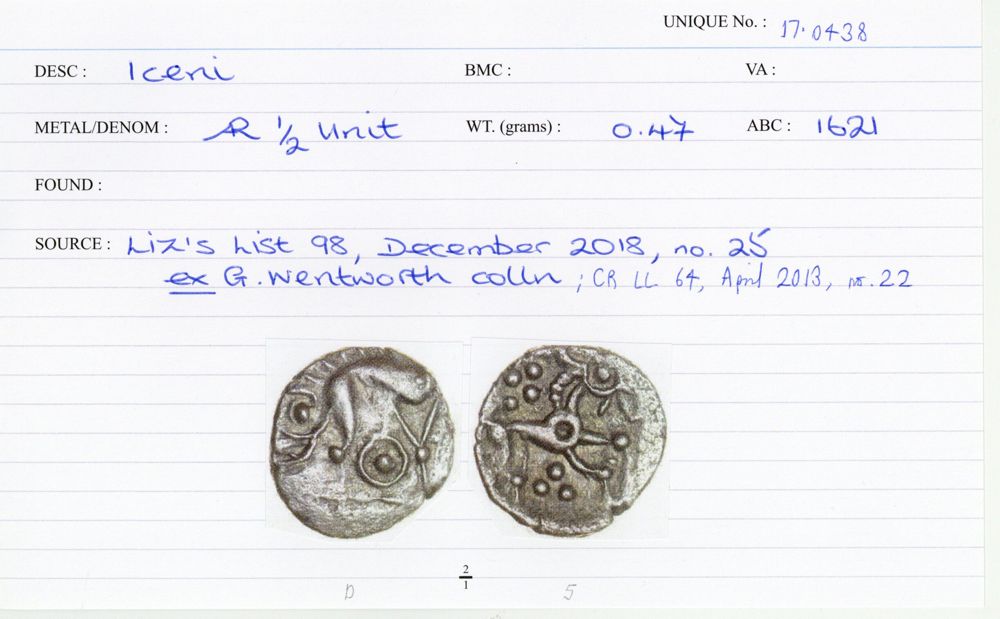 UNIQUE No. : 17.0438
DESC : Iceni BMC : VA :
METAL/DENOM : AR 1/2 Unit WT. (grams) : 0.47 ABC : 1621
FOUND :
SOURCE : Liz's List 98, December 2018, no. 25
ex G. Wentworth colln ; CR LL 64, April 2013, no. 22
2/1
D 5